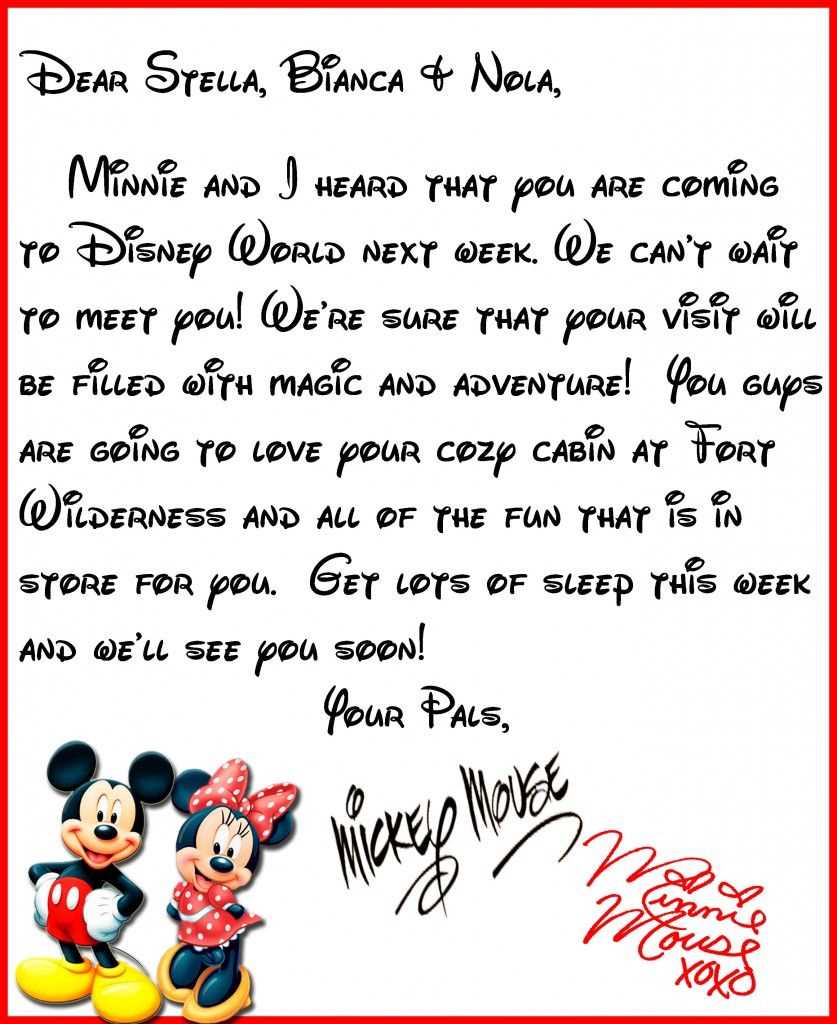 Dear Stella, Bianca & Nola,
Minnie and I heard that you are coming
to Disney World next week. We can't wait
to meet you! We're sure that your visit will
be filled with magic and adventure! You guys
are going to love your cozy cabin at Fort
Wilderness and all of the fun that is in
store for you. Get lots of sleep this week
and we'll see you soon!
Your Pals,
Mickey Mouse
Minnie
Mouse
xoxo